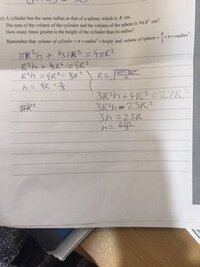 e) A cylinder has the same radius as that of a sphere, which is R cm.
The sum of the volume of the cylinder and the volume of the sphere is 9πR³ cm³.
How many times greater is the height of the cylinder than its radius?
Remember that volume of cylinder = π × radius² × height and volume of sphere = 4/3 × π × radius³.
πR²h + 4/3πR³ = 9πR³
R²h + 4/3R³ = 9R³
R²h = 9R³ - 4/3R³
3R²h + 4R³ = 27R³
3R²h = 23R³
3h = 23R
πR²